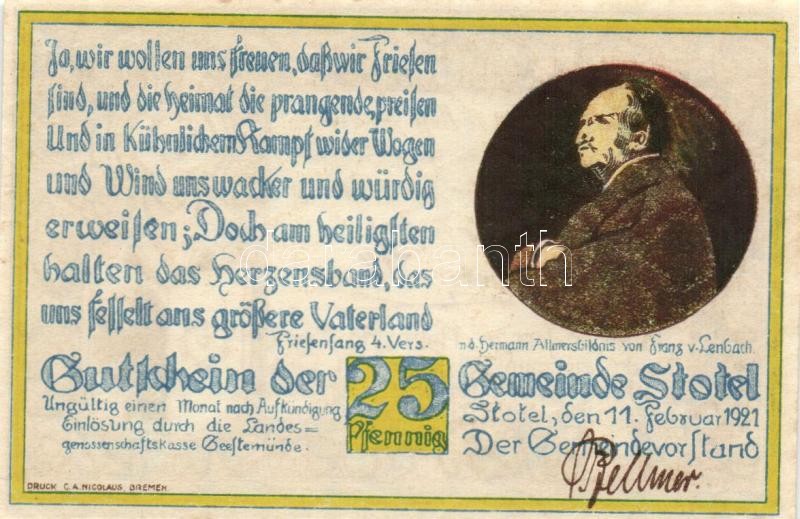 Ja, wir wollen uns freuen, daß wir Friesen
sind, und die Heimat die prangende, preisen
Und in Kühnlichem Kampf wider Wogen
und Wind uns wacker und würdig
erweisen; Doch am heiligsten
halten das Herzensband, das
uns fesselt ans größere Vaterland
Friesensang 4. Vers.
n.d. Hermann Allmersbildnis von Franz v. Lenbach.
Gutschein der
25
Pfennig
Gemeinde Stotel
Ungültig einen Monat nach Aufkündigung
Einlösung durch die Landes=
genossenschaftskasse Geestemünde.
Stotel, den 11. Februar 1921
Der Gemeindevorstand
Bellmer.
DRUCK C. A. NICOLAUS, BREMEN.
darabanth